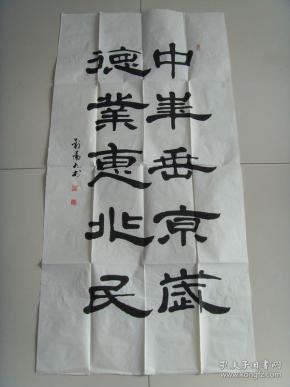 中華垂京歲
德業惠兆民
孔夫子旧书网